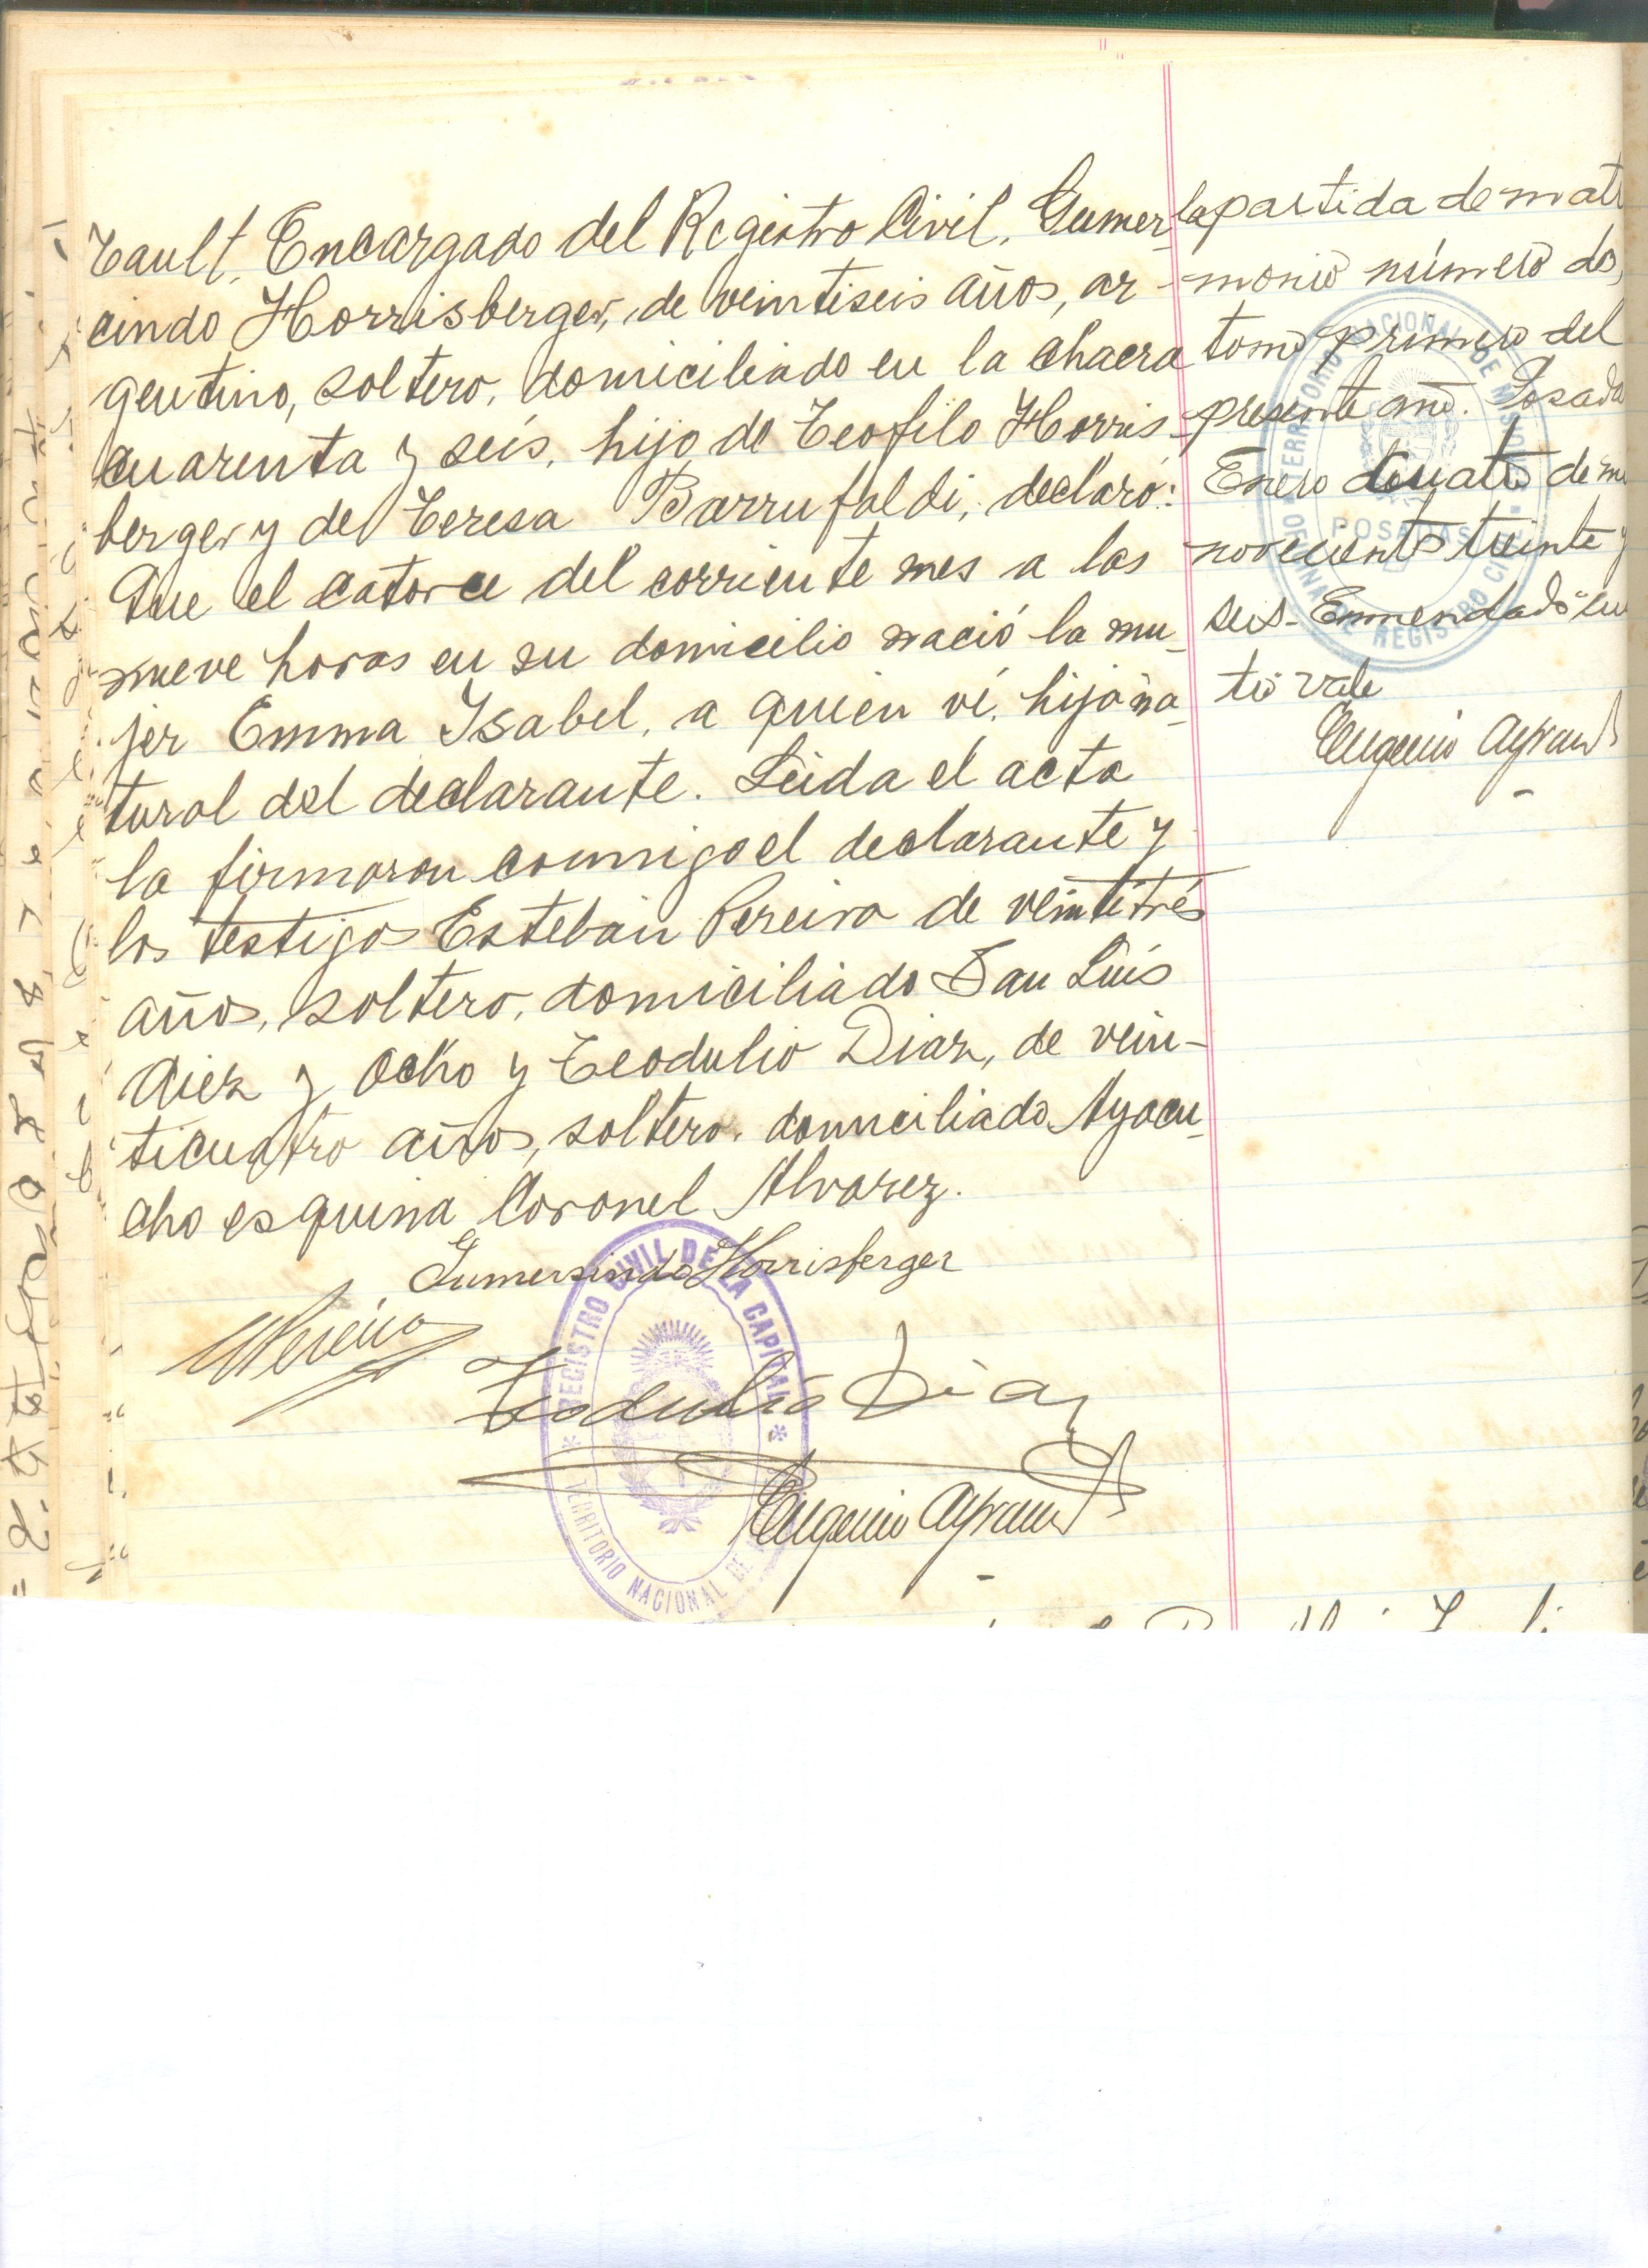 Tault, Encargado del Registro Civil, Gumer-
cindo Horrisberger, de veintiseis años, ar-
gentino, soltero, domiciliado en la chacra
cuarenta y seis, hijo de Teofilo Horris-
berger y de Teresa Barrufaldi, declaró:
Que el catorce del corriente mes a las
nueve horas en su domicilio nació la mu-
jer Emma Isabel, a quien ví, hija na-
tural del declarante. Leida el acta
la firmaron conmigo el declarante y
los testigos Esteban Pereira de veintitrés
años, soltero, domiciliado San Luis
diez y ocho y Teodulio Diaz, de vein-
ticuatro años, soltero, domiciliado Ayacu-
cho esquina Coronel Alvarez.
Gumersindo Horrisberger
Pereira
Teodulio Diaz
Eugenio Ayrault
REGISTRO CIVIL DE LA CAPITAL
TERRITORIO NACIONAL DE
la partida de matri
monio número dos,
tomo primero del
presente año. Posadas
Enero cuatro de mil
novecientos treinta y
seis. Enmendado "cua
tro" vale
Eugenio Ayrault
TERRITORIO NACIONAL DE MISIONES
POSADAS
OFICINA DE REGISTRO CIVIL